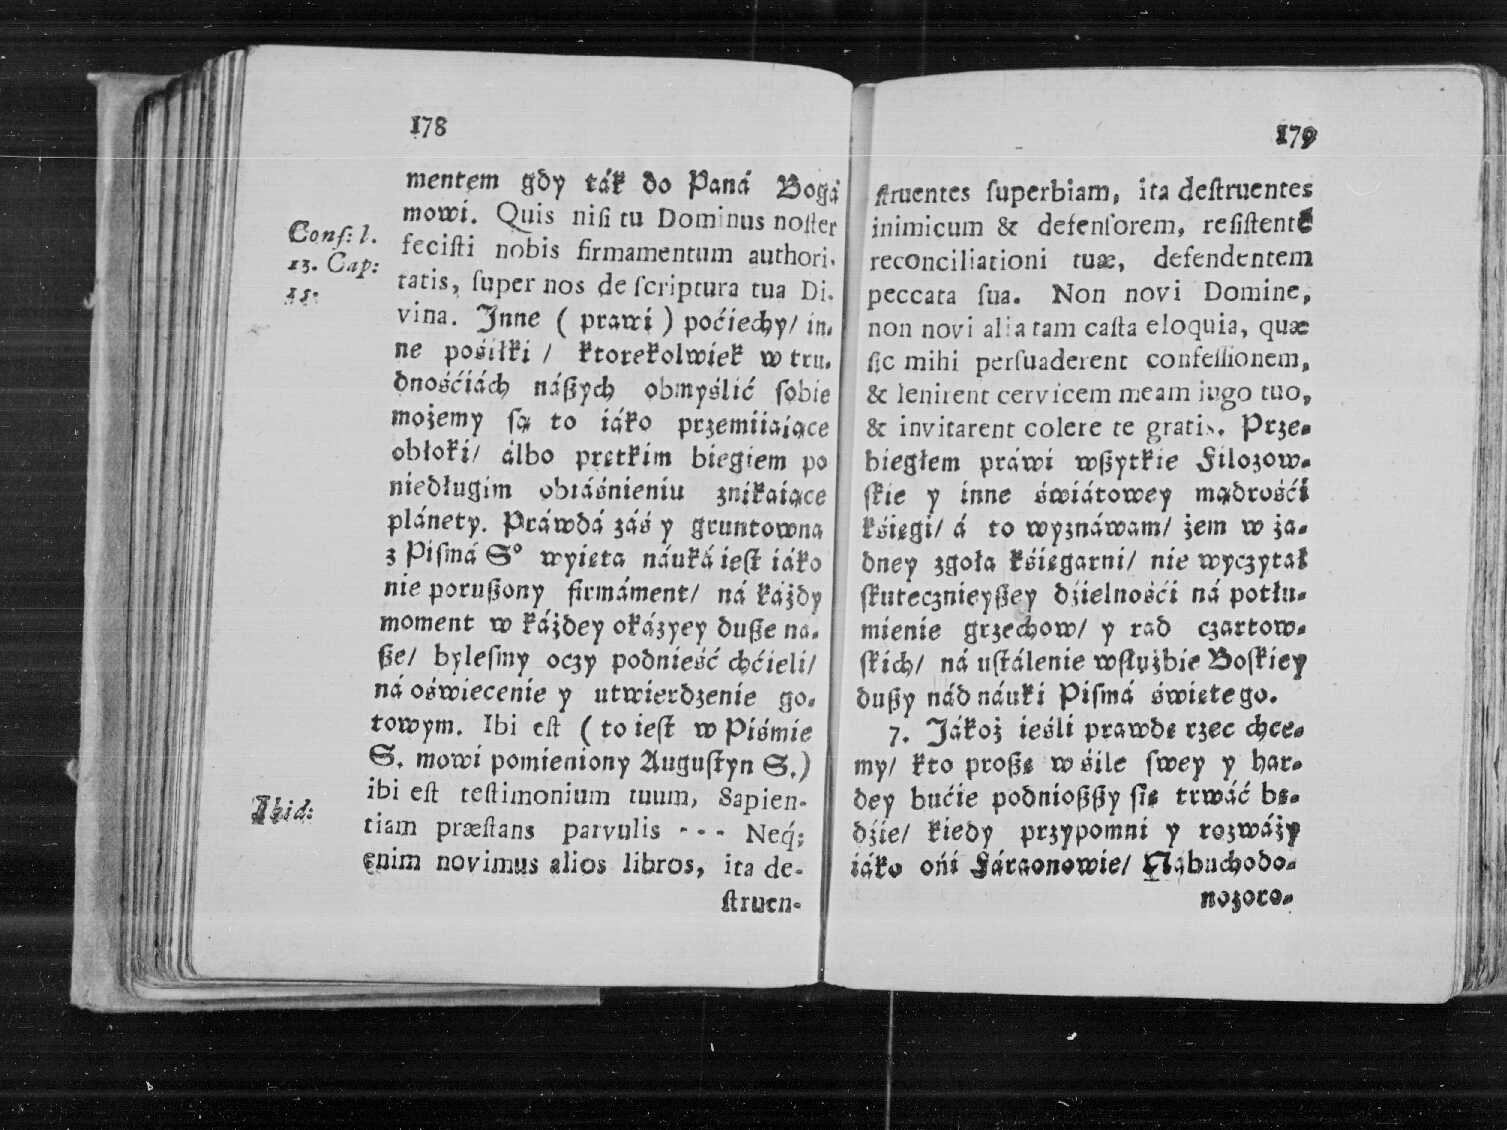 178
mentem gdy ták do Paná Bogá
mowi. Quis niſi tu Dominus noſter
feciſti nobis firmamentum authori-
tatis, ſuper nos de ſcriptura tua Di-
vina. Inne ( prawi ) poćiechy/ in-
ne pośiłki / ktorekolwiek w tru-
dnośćiách nászych obmyślić ſobie
możemy ſą to iáko przemiiaiące
obłoki/ álbo prętkim biegiem po
niedługim obiáśnieniu znikaiące
plánety. Práwdá záś y gruntowna
z Piſmá Sº wyięta náuká ieſt iáko
nie poruszony firmáment/ ná káżdy
moment w káżdey okázyey dusze na-
sze/ byleſmy oczy podnieść chćieli/
ná oświecenie y utwierdzenie go-
towym. Ibi eſt ( to ieſt w Piśmie
S. mowi pomieniony Auguſtyn S.)
ibi eſt teſtimonium tuum, Sapien-
tiam præſtans parvulis - - - Neq́;
enim novimus alios libros, ita de-
ſtruen-
Conf: l.
13. Cap:
15.
Ibid:
179
ſtruentes ſuperbiam, ita deſtruentes
inimicum & defenſorem, reſiſtentē
reconciliationi tuæ, defendentem
peccata ſua. Non novi Domine,
non novi alia tam caſta eloquia, quæ
ſic mihi perſuaderent confeſſionem,
& lenirent cervicem meam iugo tuo,
& invitarent colere te gratis. Prze-
biegłem práwi wszytkie Filozow-
ſkie y inne świátowey mądrośći
kśięgi/ á to wyznáwam/ żem w ża-
dney zgoła kśięgarni/ nie wyczytał
ſkutecznieyszey dźielnośći ná potłu-
mienie grzechow/ y rad czartow-
ſkich/ ná uſtálenie wſłużbie Boſkiey
duszy nád náuki Piſmá świętego.
7. Jákoż ieśli prawdę rzec chce-
my/ kto proszę w śile ſwey y har-
dey bućie podnioszszy ſię trwáć bę-
dźie/ kiedy przypomni y rozwáży
iáko ońi Fáraonowie/ Nabuchodo-
nozoro-